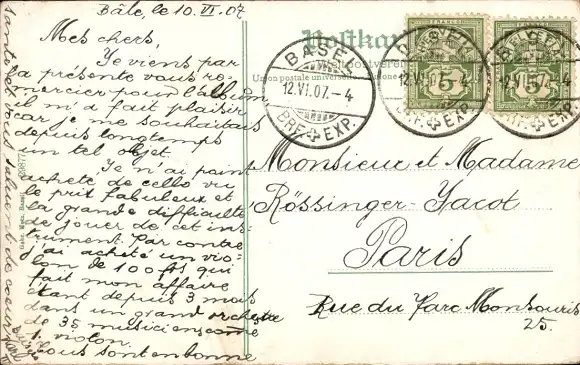 Bâle, le 10. VI. 07
Mes chers,
Je viens par
la présente vous re-
mercier pour l'album
il m'a fait plaisir
car je me souhaitais
depuis longtemps
un tel objet.
Je n'ai point
acheté de cello vu
le prix fabuleux et
la grande difficulté
de jouer de cet ins-
trument. Par contre
j'ai acheté un vio-
lon de 100 fts qui
fait mon affaire
étant depuis 3 mois
dans un grand orchestre
de 35 musiciens comme
1. violon.
Vous sont en bonne
santé et vous saluent de coeur
Postkarte
Union postale universelle
BASEL
12.VI.07.-4
BRF. EXP.
HELVETIA
5
12.VI.07.-4
BRF. EXP.
HELVETIA
5
12.VI.07.-4
EXP.
Monsieur et Madame
Rössinger-Jacot
Paris
Rue du Parc Montsouris
25.
Gebr. Metz, Basel